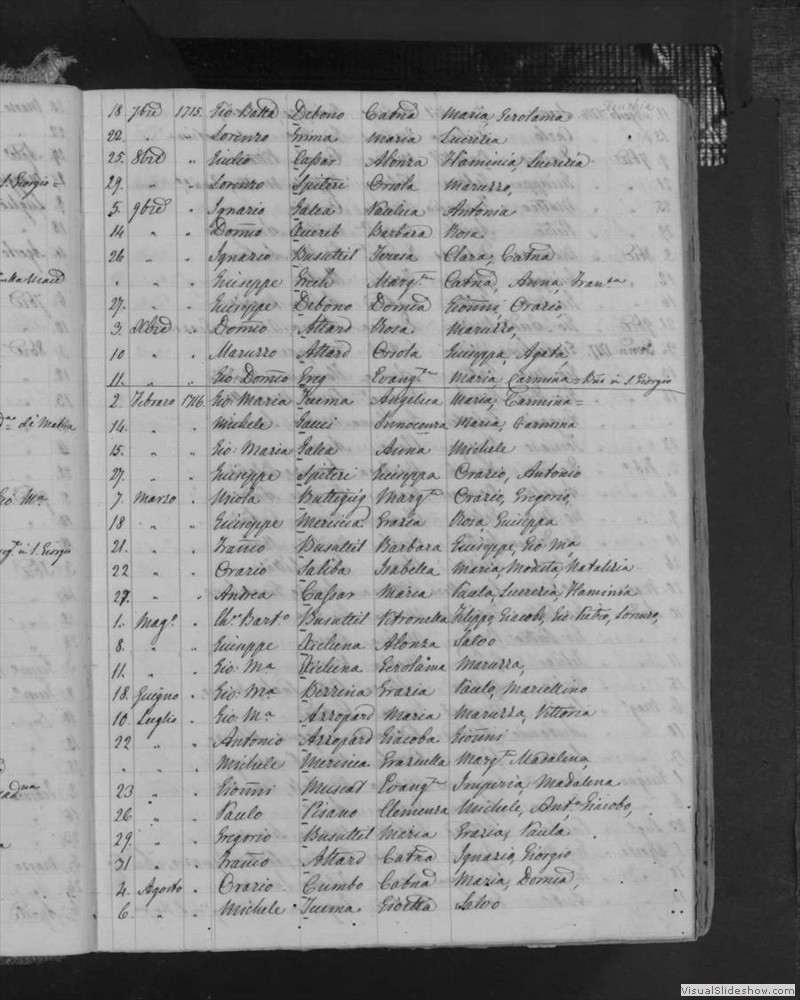 18. 7bre 1715. Gio Batta Debono Catna Maria Gerolama
22. " " Lorenzo Grima Maria Lucrezia
25. 8bre " Giulio Cassar Alonza Flaminia, Lucrezia
29. " " Lorenzo Spiteri Oriola Maruzza,
5. 9bre " Ignazio Galea Paulica Antonia
14 " " Domco Xuereb Barbara Rosa
26 " " Ignazio Busuttil Teresa Clara, Catna
" " " Giuseppe Grech Margta Catna, Anna, Franca
27. " " Giuseppe Debono Domca Gionni Orazio
3. Xbre " Domco Attard Rosa Maruzza,
10 " " Maruzzo Attard Oriola Giuseppa, Agata,
11. " " Gio Domco Greg Evangta Maria Carmina = in S. Giorgio
2. Febraro 1716. Gio Maria Tuema Angelica Maria, Carmina =
14. " " Michele Gauci Innocenza Maria, Carmina
15. " " Gio: Maria Galea Anna Michele
27. " " Giuseppe Spiteri Giuseppa Orazio, Antonio
7. Marzo " Oriola Buttigieg Margta Orazio, Gregorio,
18 " " Giuseppe Mericca Grazia Rosa, Giuseppa
21. " " Franco Busuttil Barbara Giuseppe, Gio Ma
22 " " Orazio Saliba Isabella Maria, Modesta, Natalizia
27. " " Andrea Cassar Maria Paula, Lucrezia, Flaminia
1. Mago " Barto Busuttil Petronella Filippo, Giacobo, Gio Pietro, Lorenzo,
8. " " Giuseppe Xicluna Alonza Salvo
11. " " Gio: Ma Xicluna Gerolama Maruzza,
18. Giugno " Gio: Ma Bezzina Grazia Paulo, Marcellino
10. Luglio " Gio: Ma Azzopard Maria Maruzza, Vittoria
22 " " Antonio Azzopard Giacoba Gionni
" " " Michele Mericca Graziulla Margta Madalena,
23 " " Gionni Muscat Evangta Imperia, Madalena
26 " " Paulo Pisano Clemenza Michele, Anto Giacobo,
29. " " Gregorio Busuttil Maria Grazia, Paula
31 " " Franco Attard Catna Ignazio, Giorgio
4. Agosto " Orazio Cumbo Catna Maria, Domca,
6. " " Michele Tuema Gioetta Salvo
VisualSlideshow.com